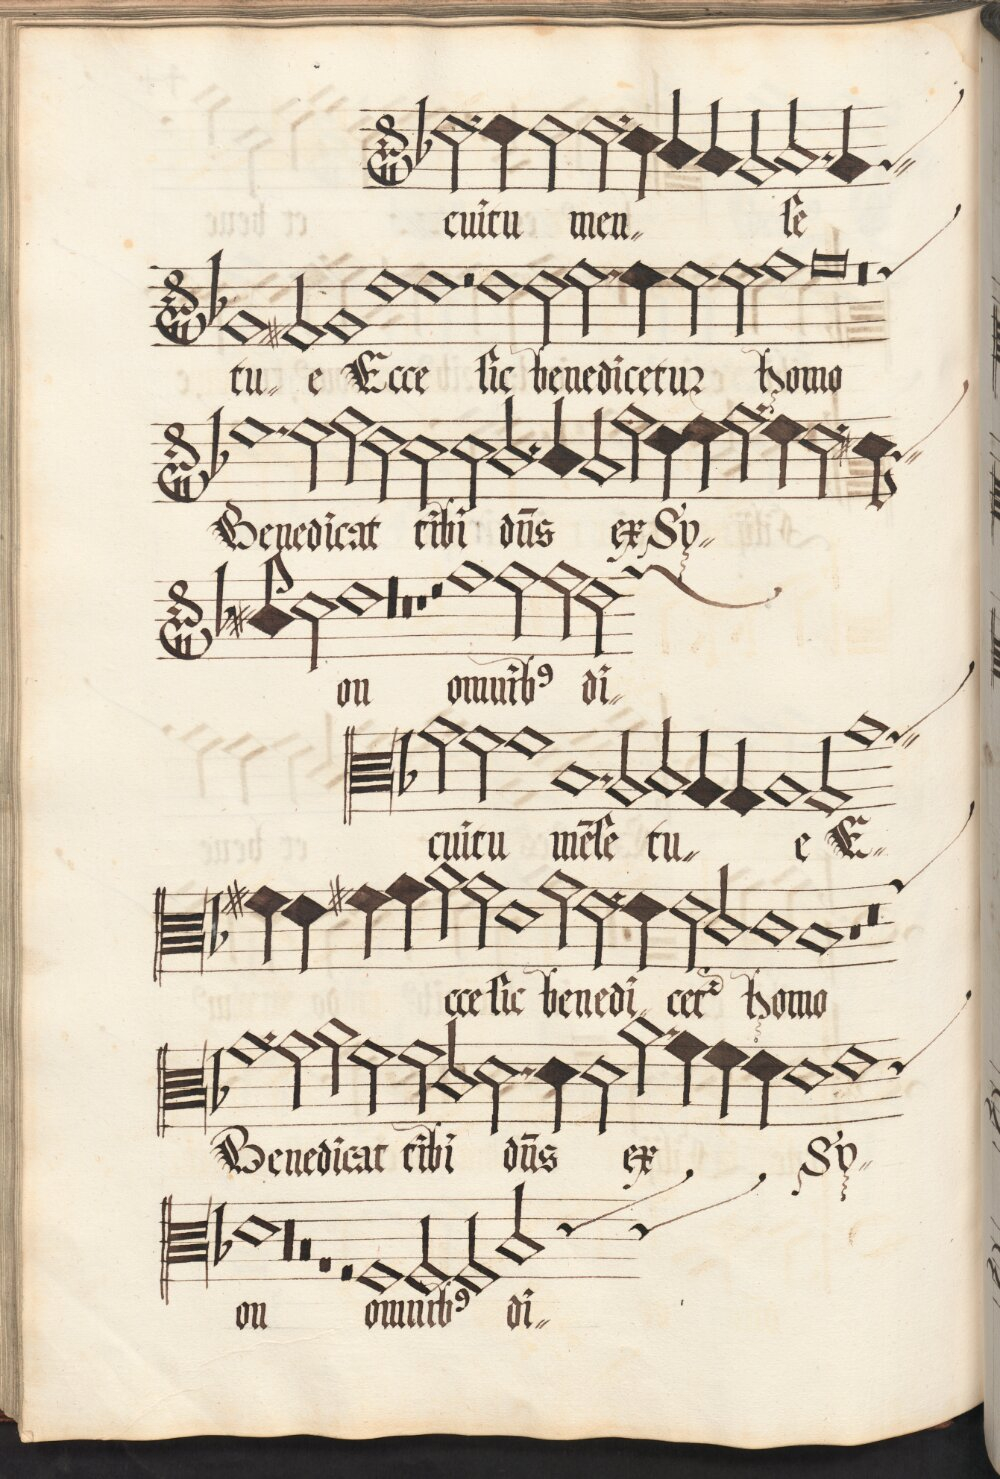 cuitu men„ se
tu„ e Ecce sic benedicetur homo
Benedicat tibi dn̄s ex Sy„
on omnib⁹ di„
cuitu mēse tu„ e E„
cce sic benedi„ cet᷑ homo
Benedicat tibi dn̄s ex Sy„
on omnib⁹ di„